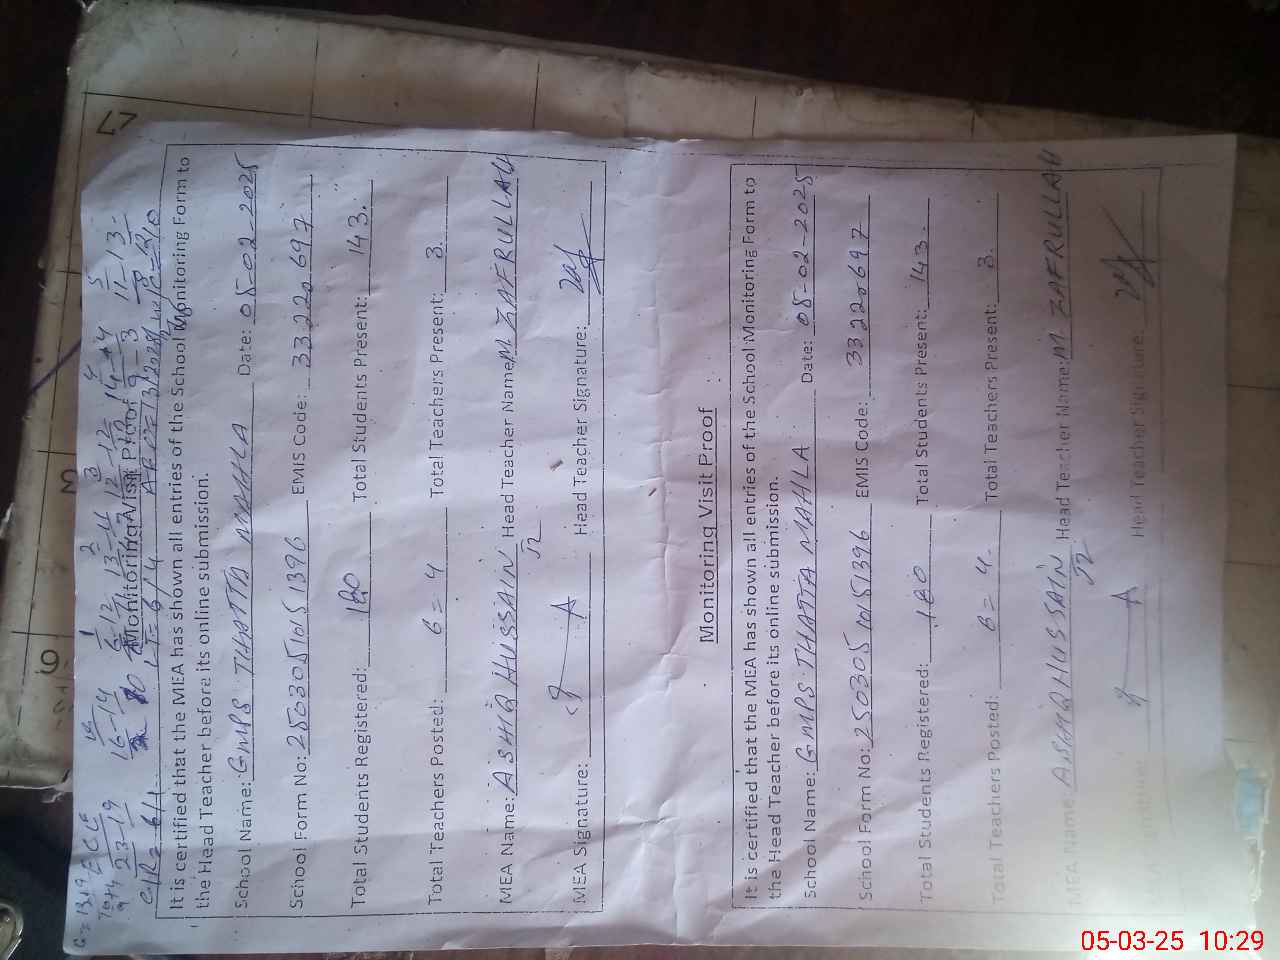 ECE
23-19
16-14
Monitoring Visit Proof
It is certified that the MEA has shown all entries of the School Monitoring Form to
the Head Teacher before its online submission.
School Name: GMPS THATTA MAHLA Date: 05-02-2025
School Form No: 25030510151396 EMIS Code: 33220697
Total Students Registered: 180 Total Students Present: 143.
Total Teachers Posted: 6=4 Total Teachers Present: 3.
MEA Name: ASHIQ HUSSAIN Head Teacher Name: M ZAFRULLAH
MEA Signature: Head Teacher Signature:
Monitoring Visit Proof
It is certified that the MEA has shown all entries of the School Monitoring Form to
the Head Teacher before its online submission.
School Name: GMPS THATTA MAHLA Date: 05-02-2025
School Form No: 25030510151396 EMIS Code: 33220697
Total Students Registered: 180 Total Students Present: 143.
Total Teachers Posted: 6=4. Total Teachers Present: 3.
MEA Name: ASHIQ HUSSAIN Head Teacher Name: M ZAFRULLAH
Head Teacher Signature:
05-03-25 10:29